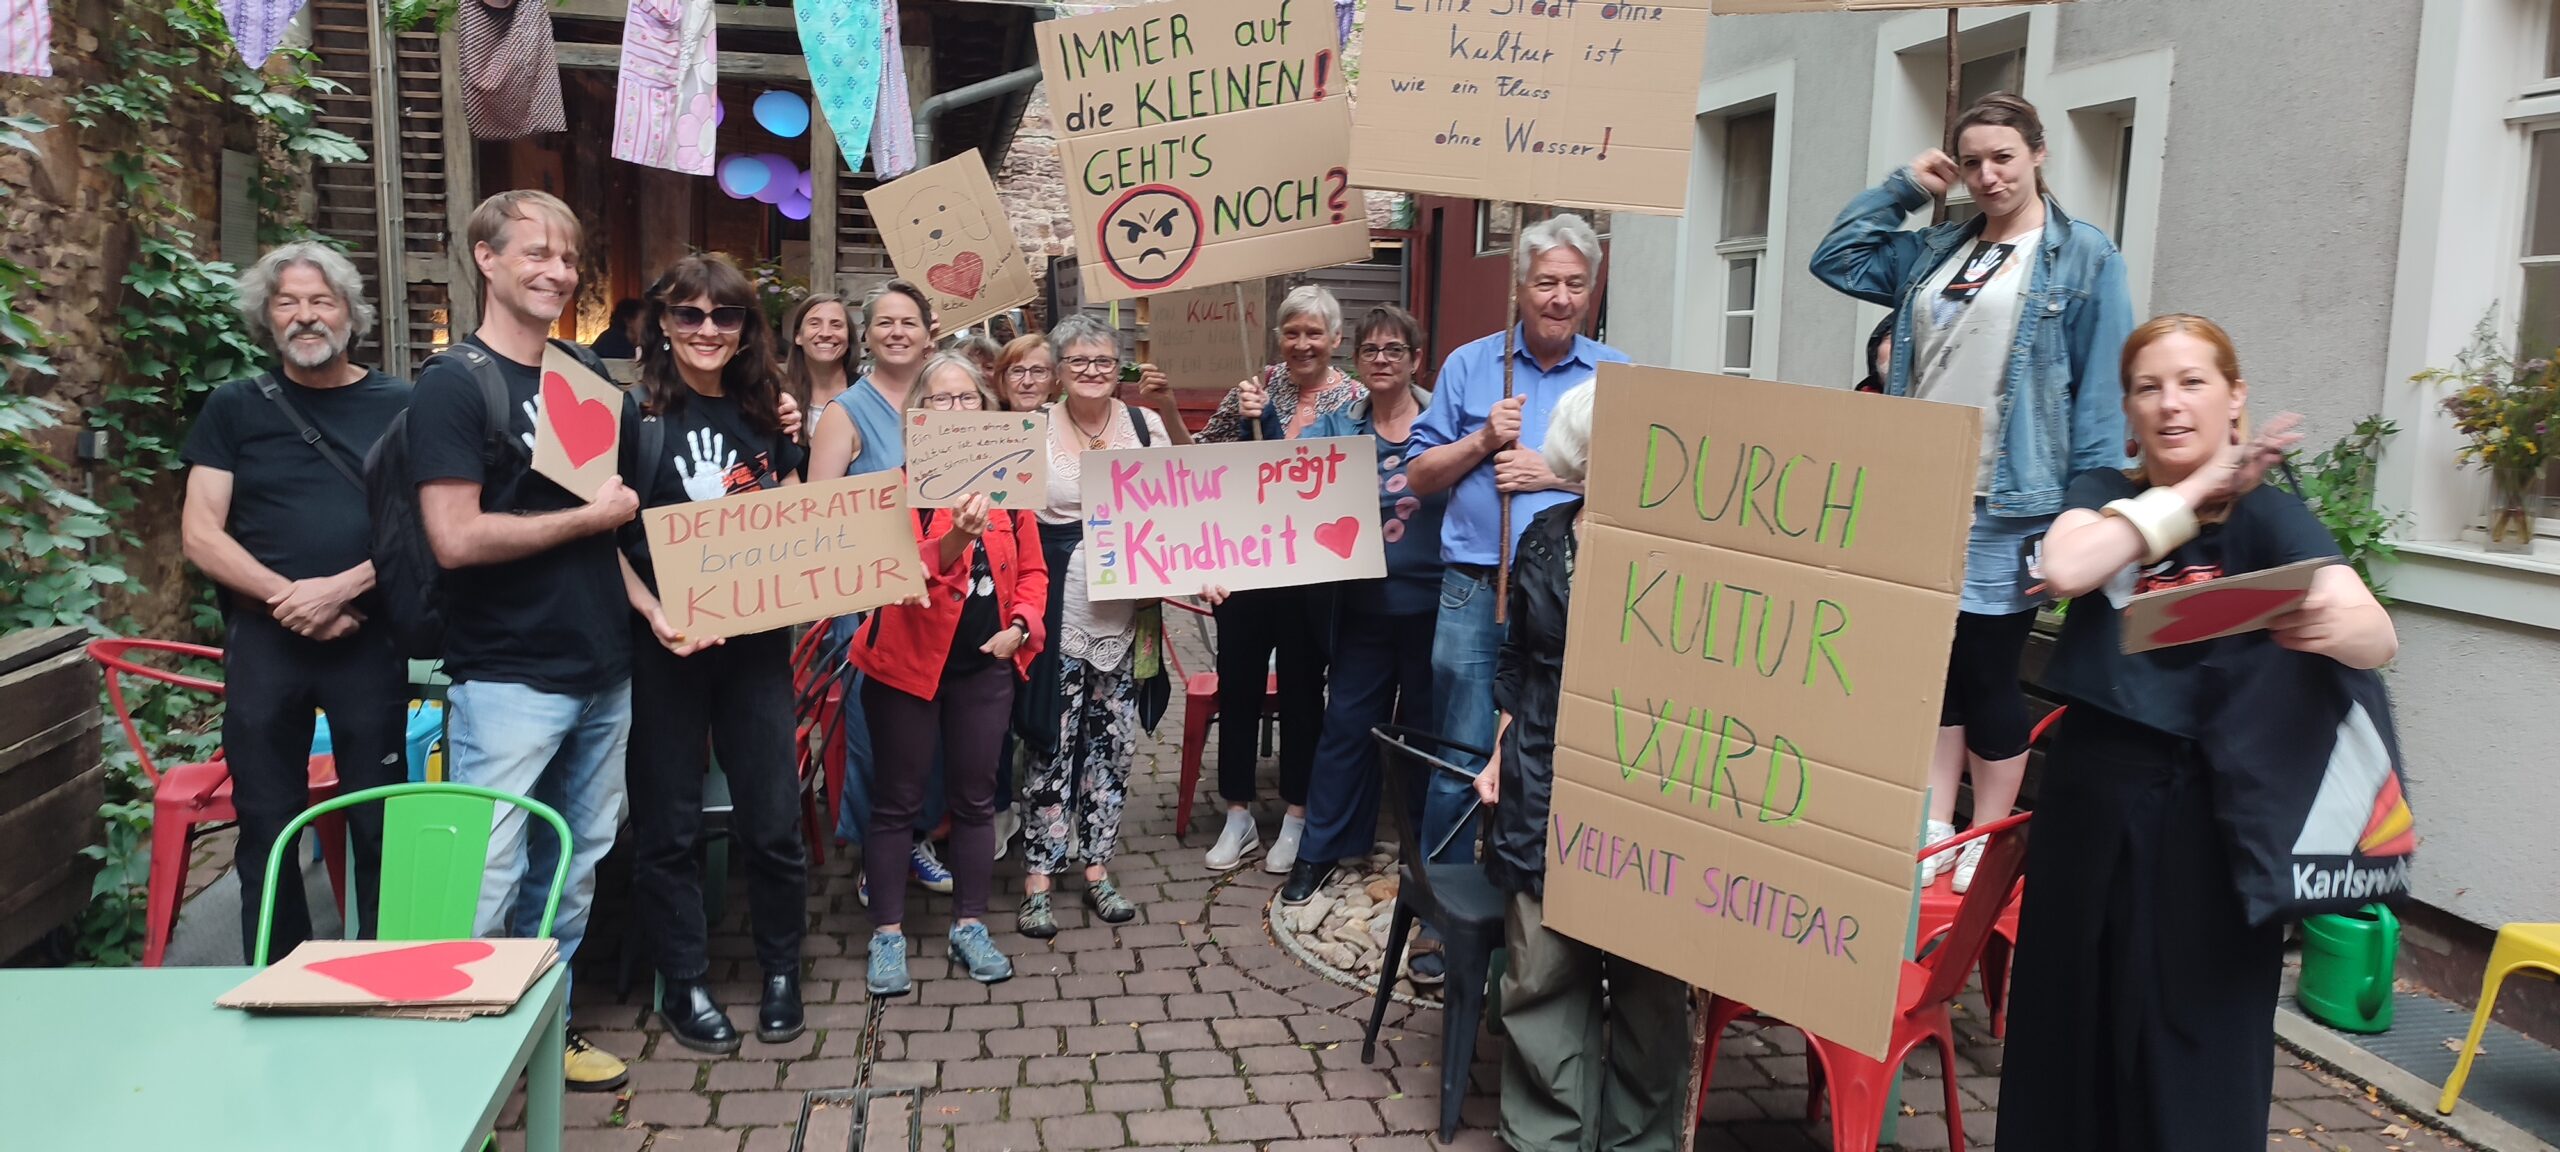 IMMER auf
die KLEINEN!
GEHT'S
NOCH?
Eine Stadt ohne
Kultur ist
wie ein Fluss
ohne Wasser!
KULTUR
DEMOKRATIE
braucht
KULTUR
Ein Leben ohne
Kultur ist denkbar
aber sinnlos.
bunte
Kultur prägt
Kindheit
DURCH
KULTUR
WIRD
VIELFALT SICHTBAR